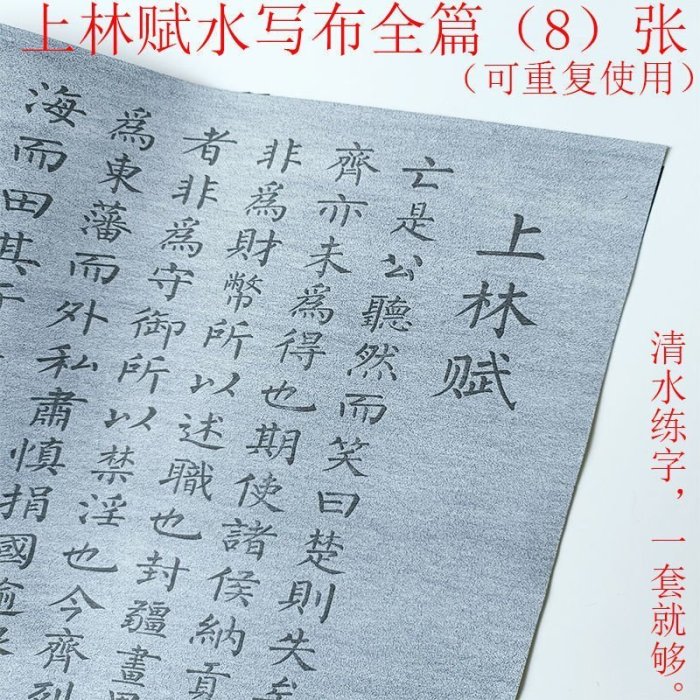 上林赋水写布全篇（8）张
（可重复使用）
上林赋
亡是公聽然而笑曰楚則失矣
齊亦未爲得也期使諸侯納貢
非爲財幣所以述職也封疆畫界
者非爲守御所以禁淫也今齊列
爲東藩而外私肅慎捐國逾
海而田其于
清水练字，一套就够。